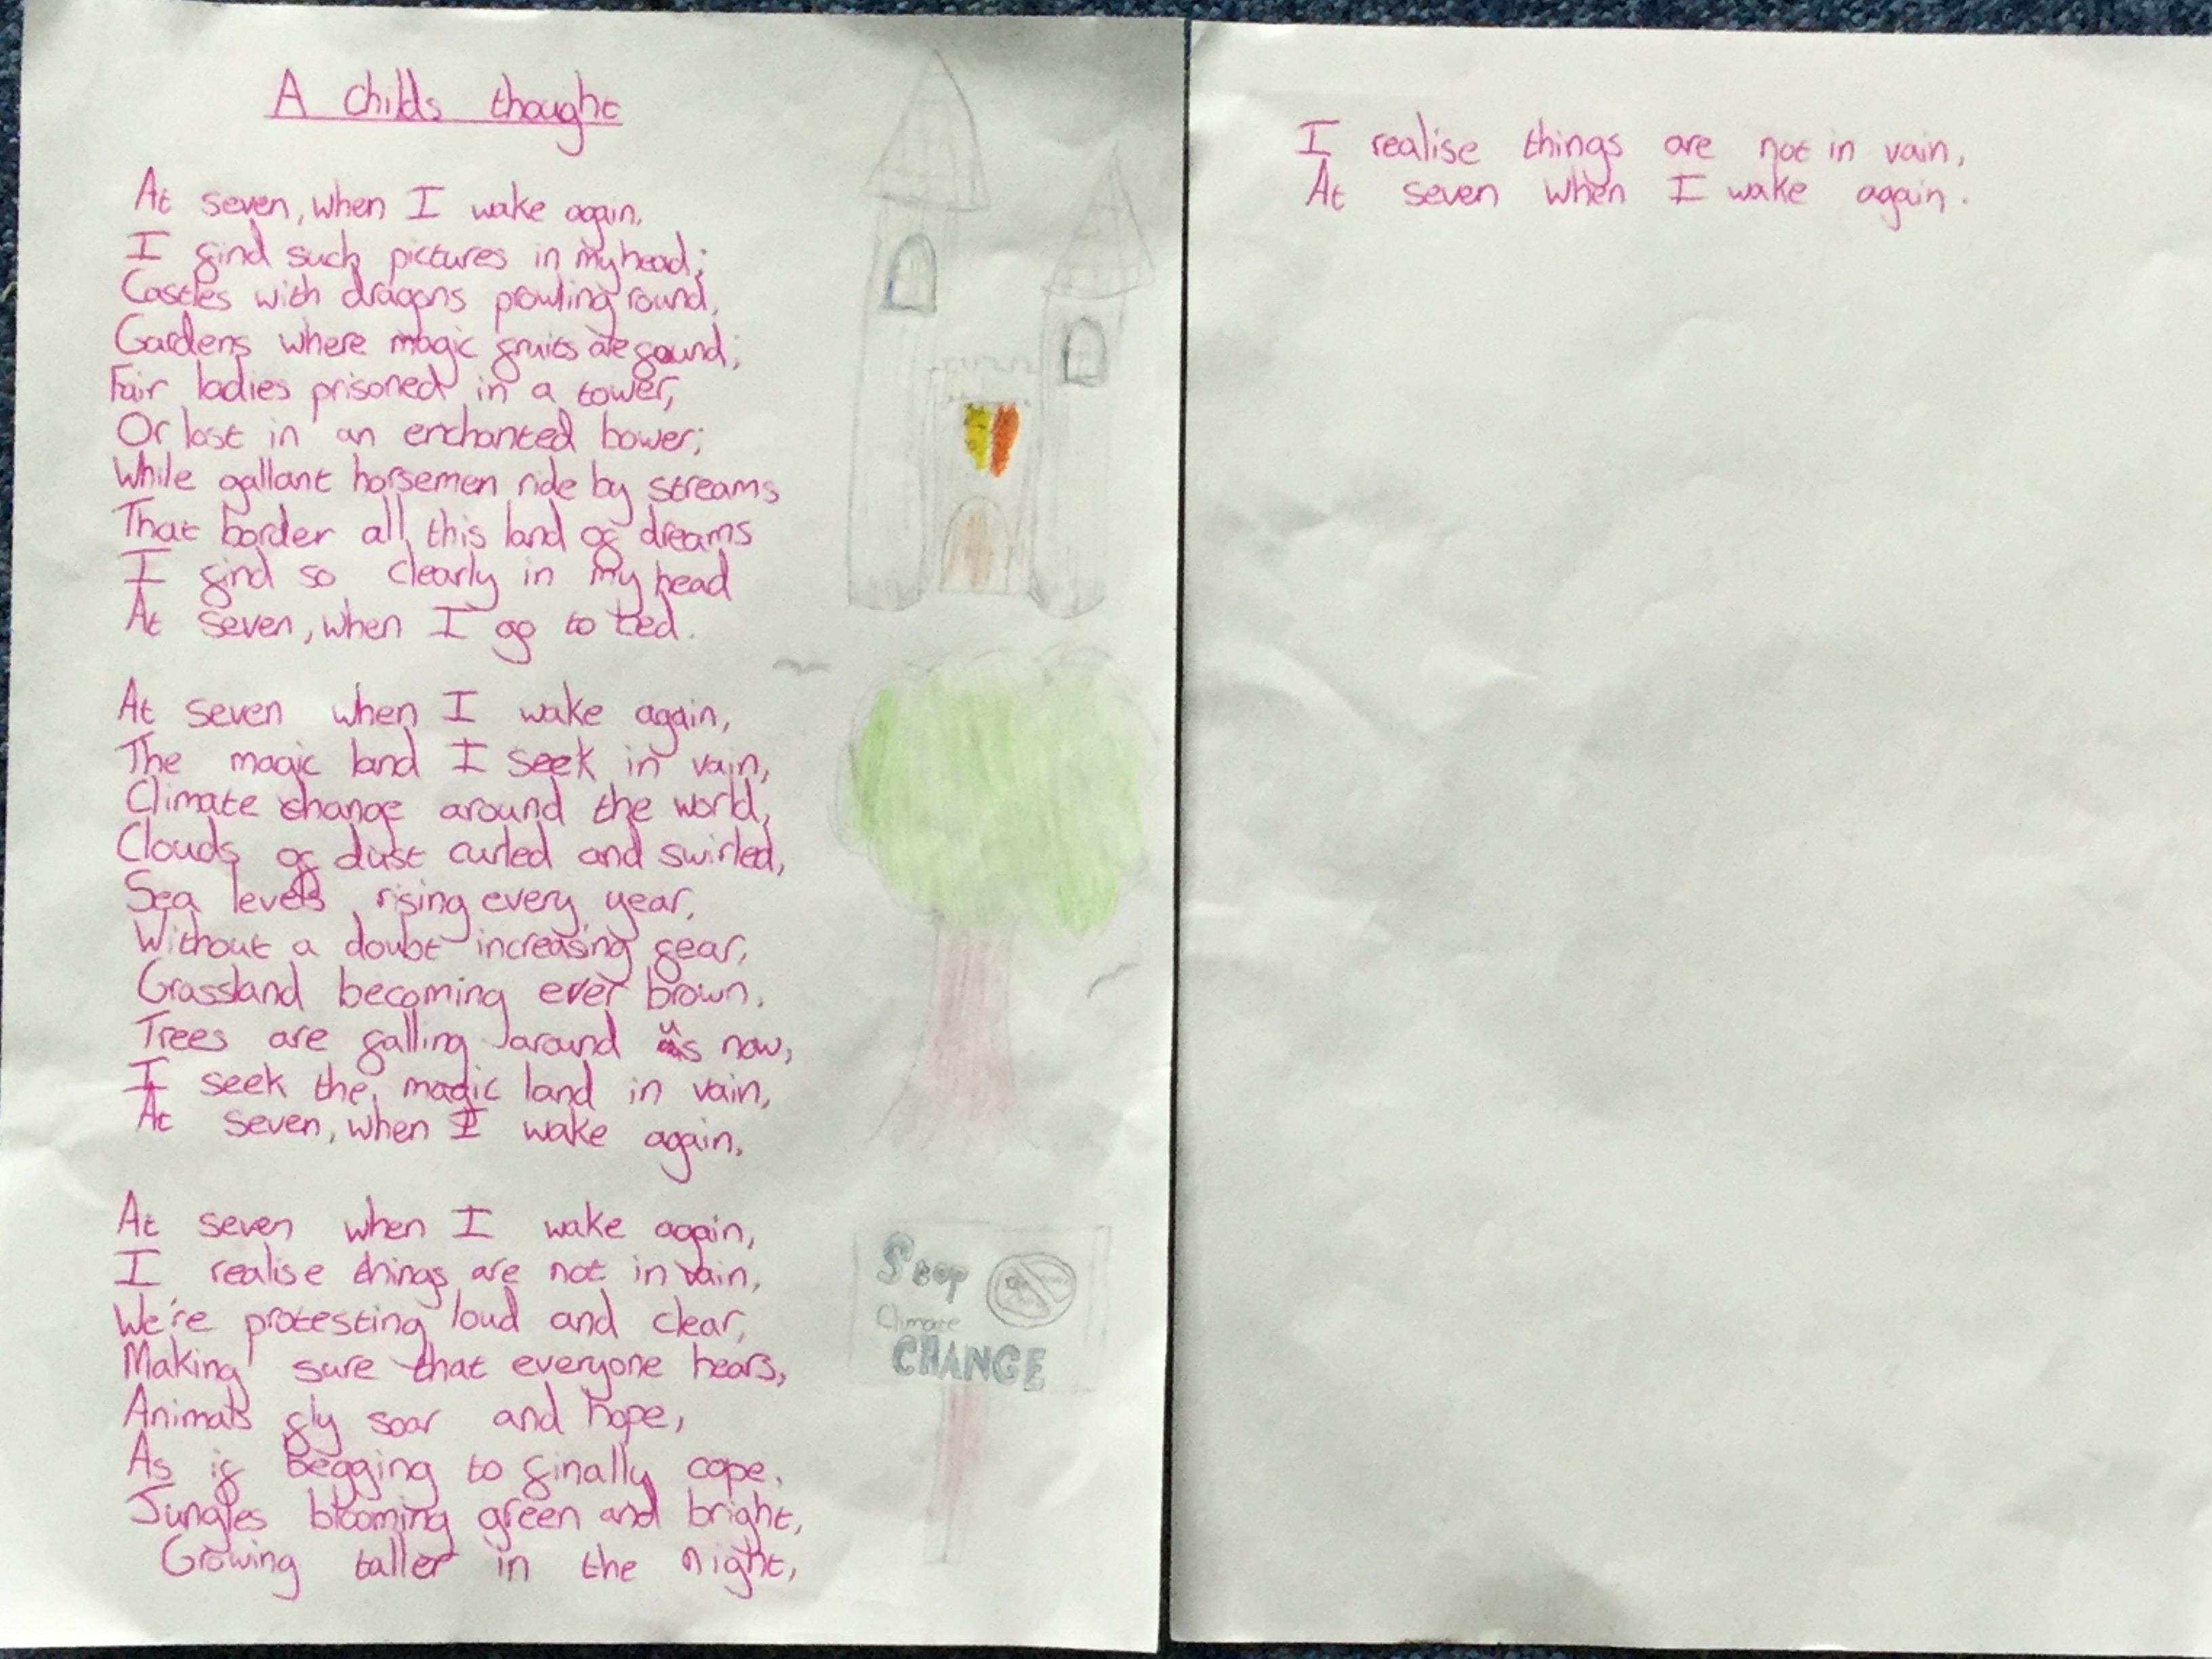 A childs thought
At seven, when I wake again,
I find such pictures in my head;
Castles with dragons prowling round,
Gardens where magic fruits are found;
Fair ladies prisoned in a tower,
Or lost in an enchanted bower;
While gallant horsemen ride by streams
That border all this land of dreams
I find so clearly in my head
At seven, when I go to bed.
At seven when I wake again,
The magic land I seek in vain,
Climate change around the world,
Clouds of dust curled and swirled,
Sea levels rising every year,
Without a doubt increasing fear,
Grassland becoming ever brown,
Trees are falling around us now,
I seek the magic land in vain,
At seven, when I wake again.
At seven when I wake again,
I realise things are not in vain,
We're protesting loud and clear,
Making sure that everyone hears,
Animals fly soar and hope,
As if begging to finally cope,
Jungles blooming green and bright,
Growing taller in the night,
Stop
Climate
CHANGE
I realise things are not in vain,
At seven when I wake again.